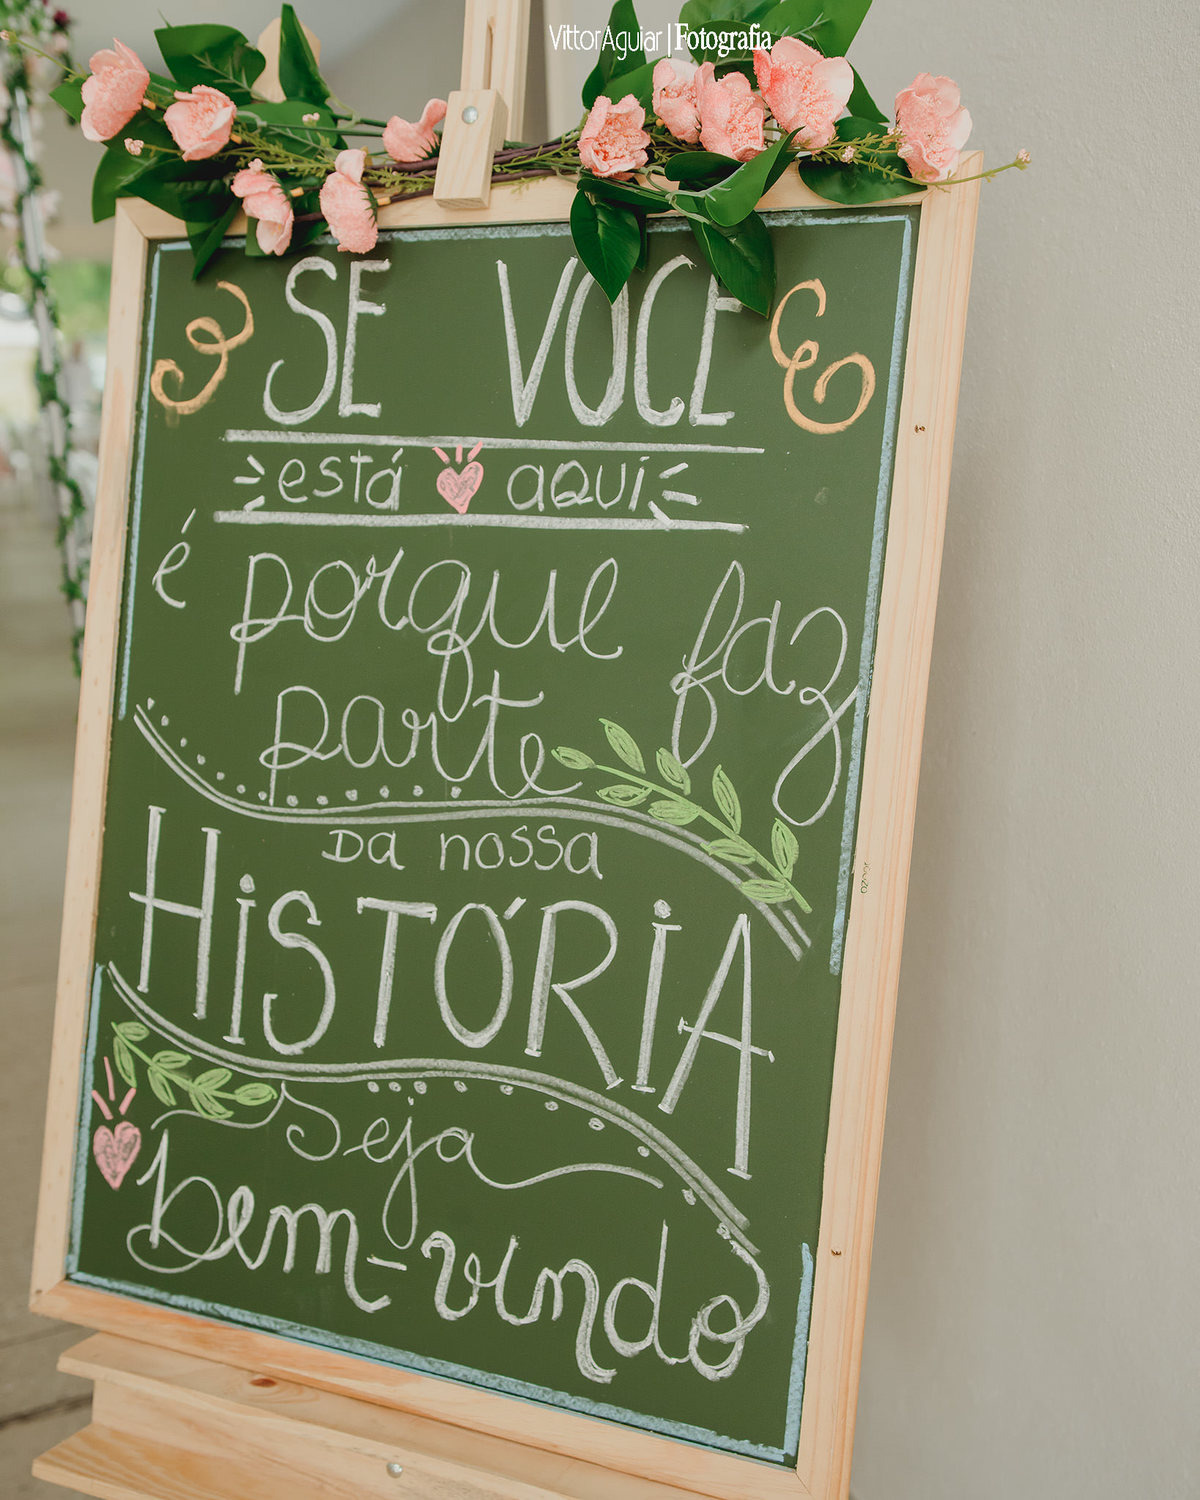 VittorAguiar | Fotografia
SE VOCE
está aqui
é porque faz
parte
Da nossa
HiSTÓRiA
Seja
bem-vindo